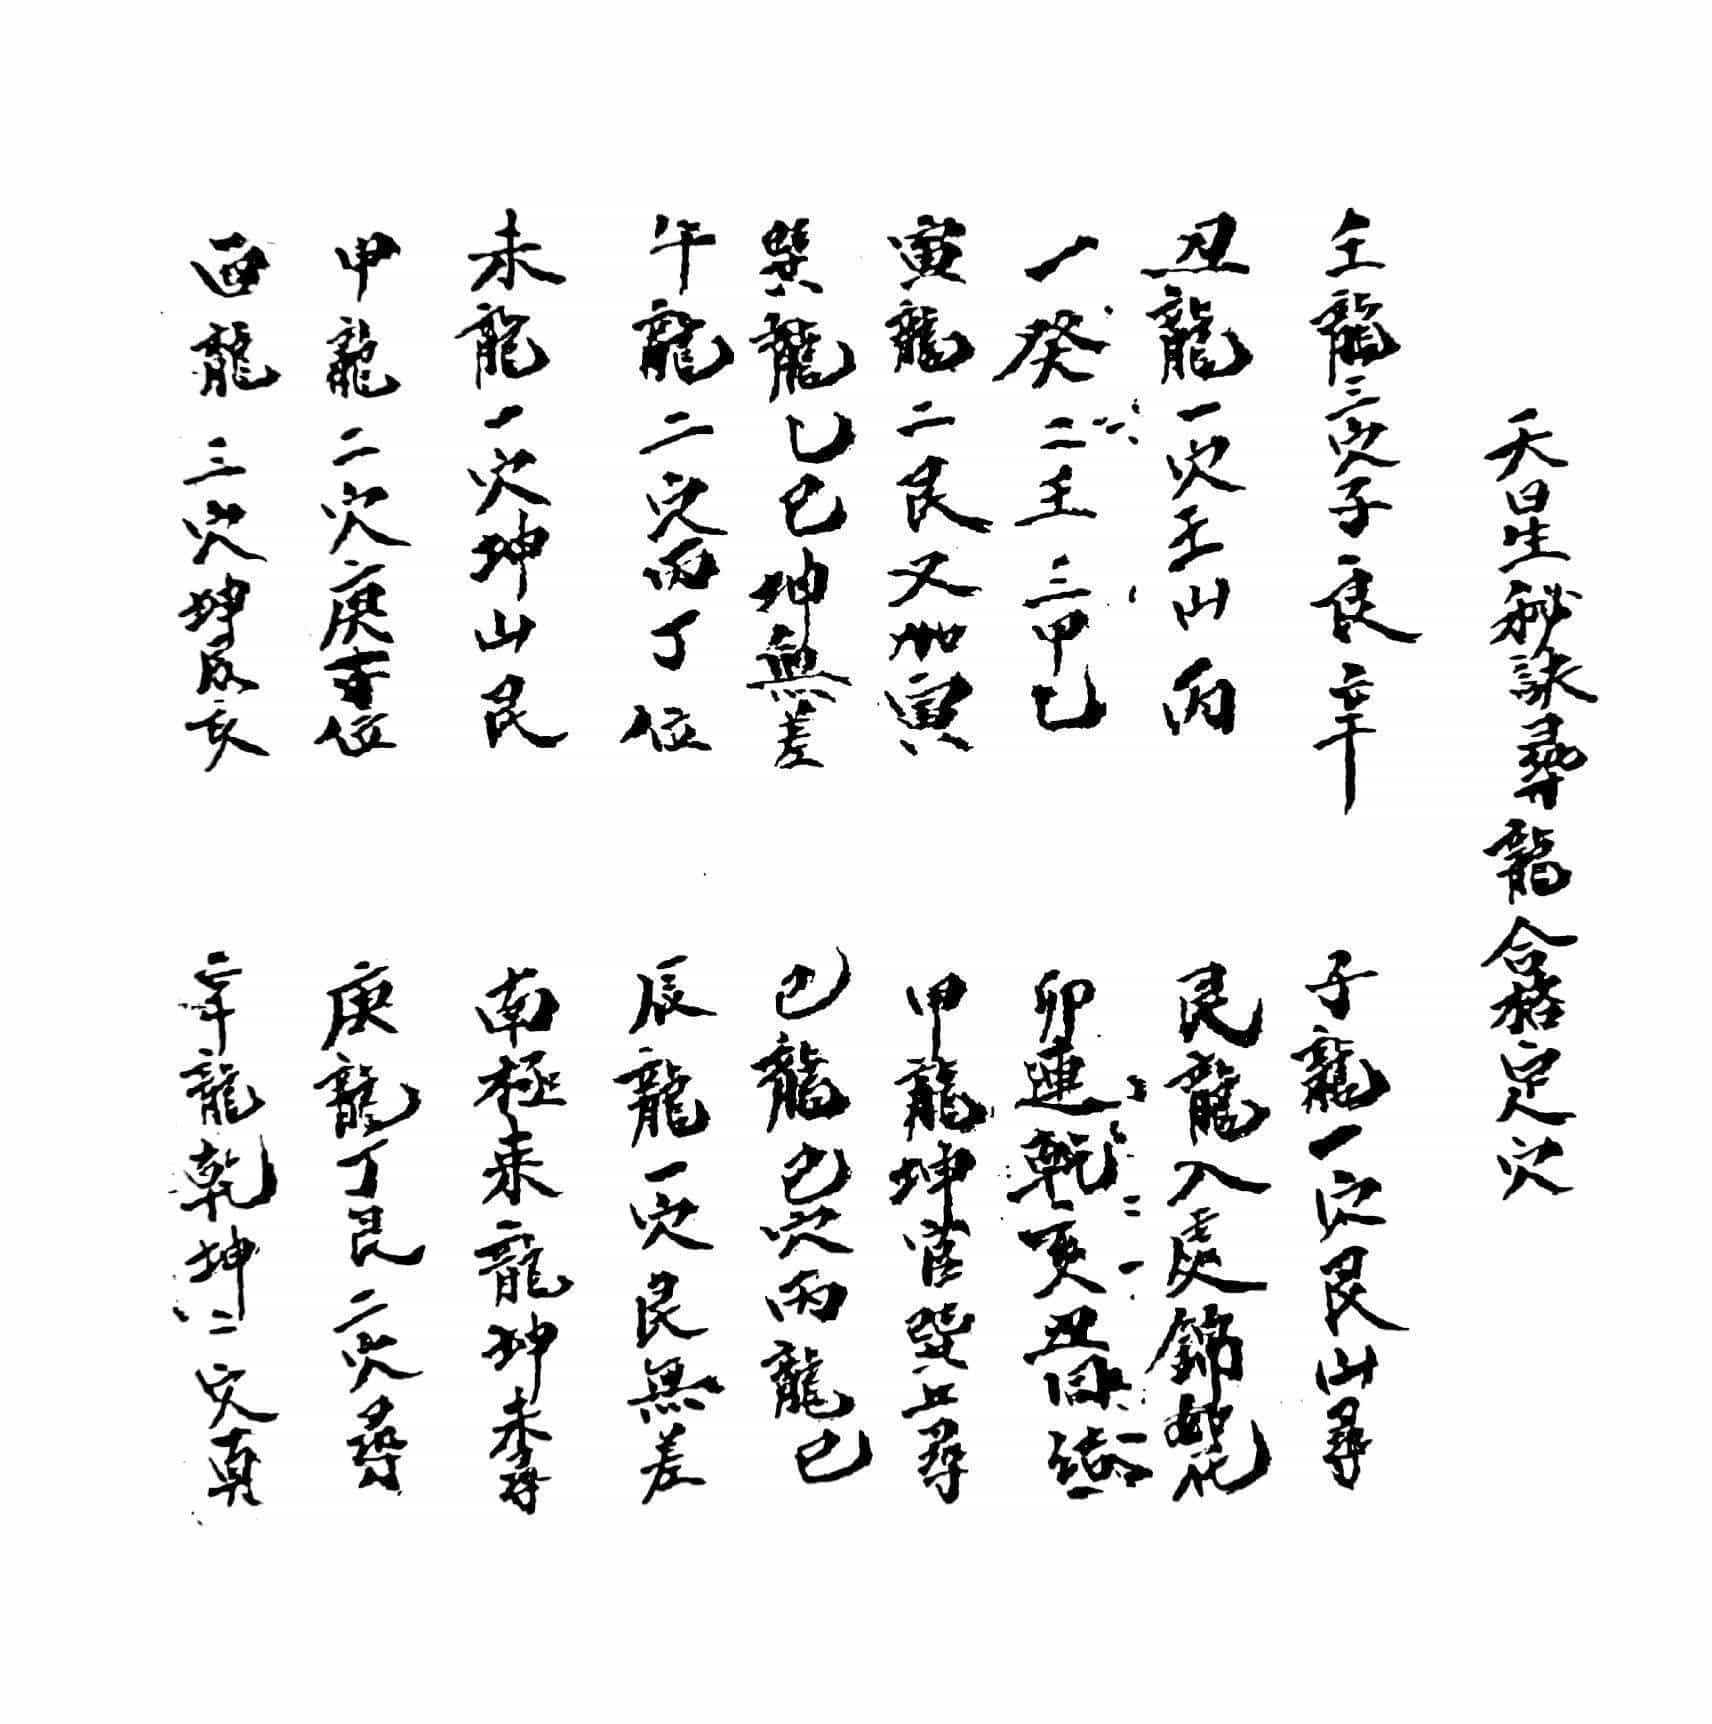 天星秘訣尋龍合格定穴
壬龍三穴子艮辛　子龍一穴艮山尋
丑龍一穴壬山丙　艮龍入處錦如花
一癸二壬三甲乙　卯連乾亥丑同
寅龍二艮又加寅　甲龍坤宮巽上尋
巽龍乙巳坤無差　巳龍乙穴丙龍巳
午龍二穴丙丁位　辰龍一穴艮無差
未龍一穴坤山艮　南極來龍坤未尋
申龍二穴庚辛位　庚龍丁艮二穴尋
酉龍三穴坤艮亥　辛龍乾坤二穴真